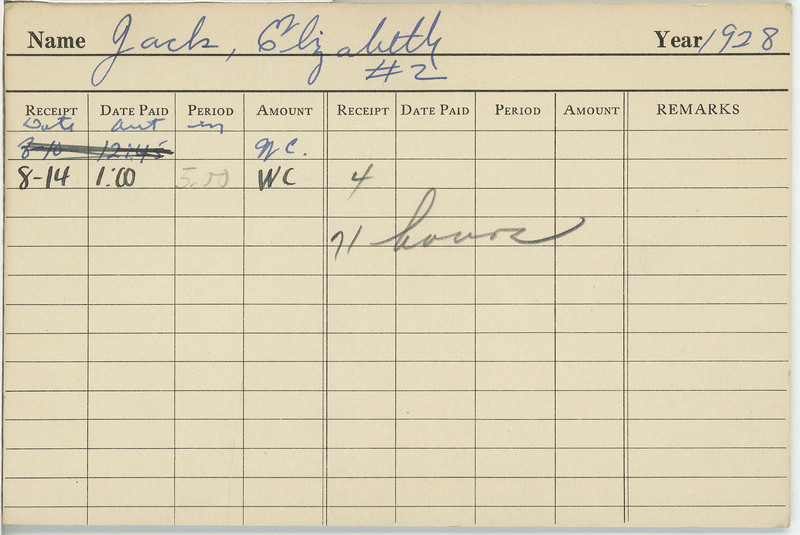 Name Jack, Elizabeth Year 1928
#2
RECEIPT DATE PAID PERIOD AMOUNT RECEIPT DATE PAID PERIOD AMOUNT REMARKS
Date out in
8-10 12:45 W C.
8-14 1:00 5:00 WC 4
71 hours